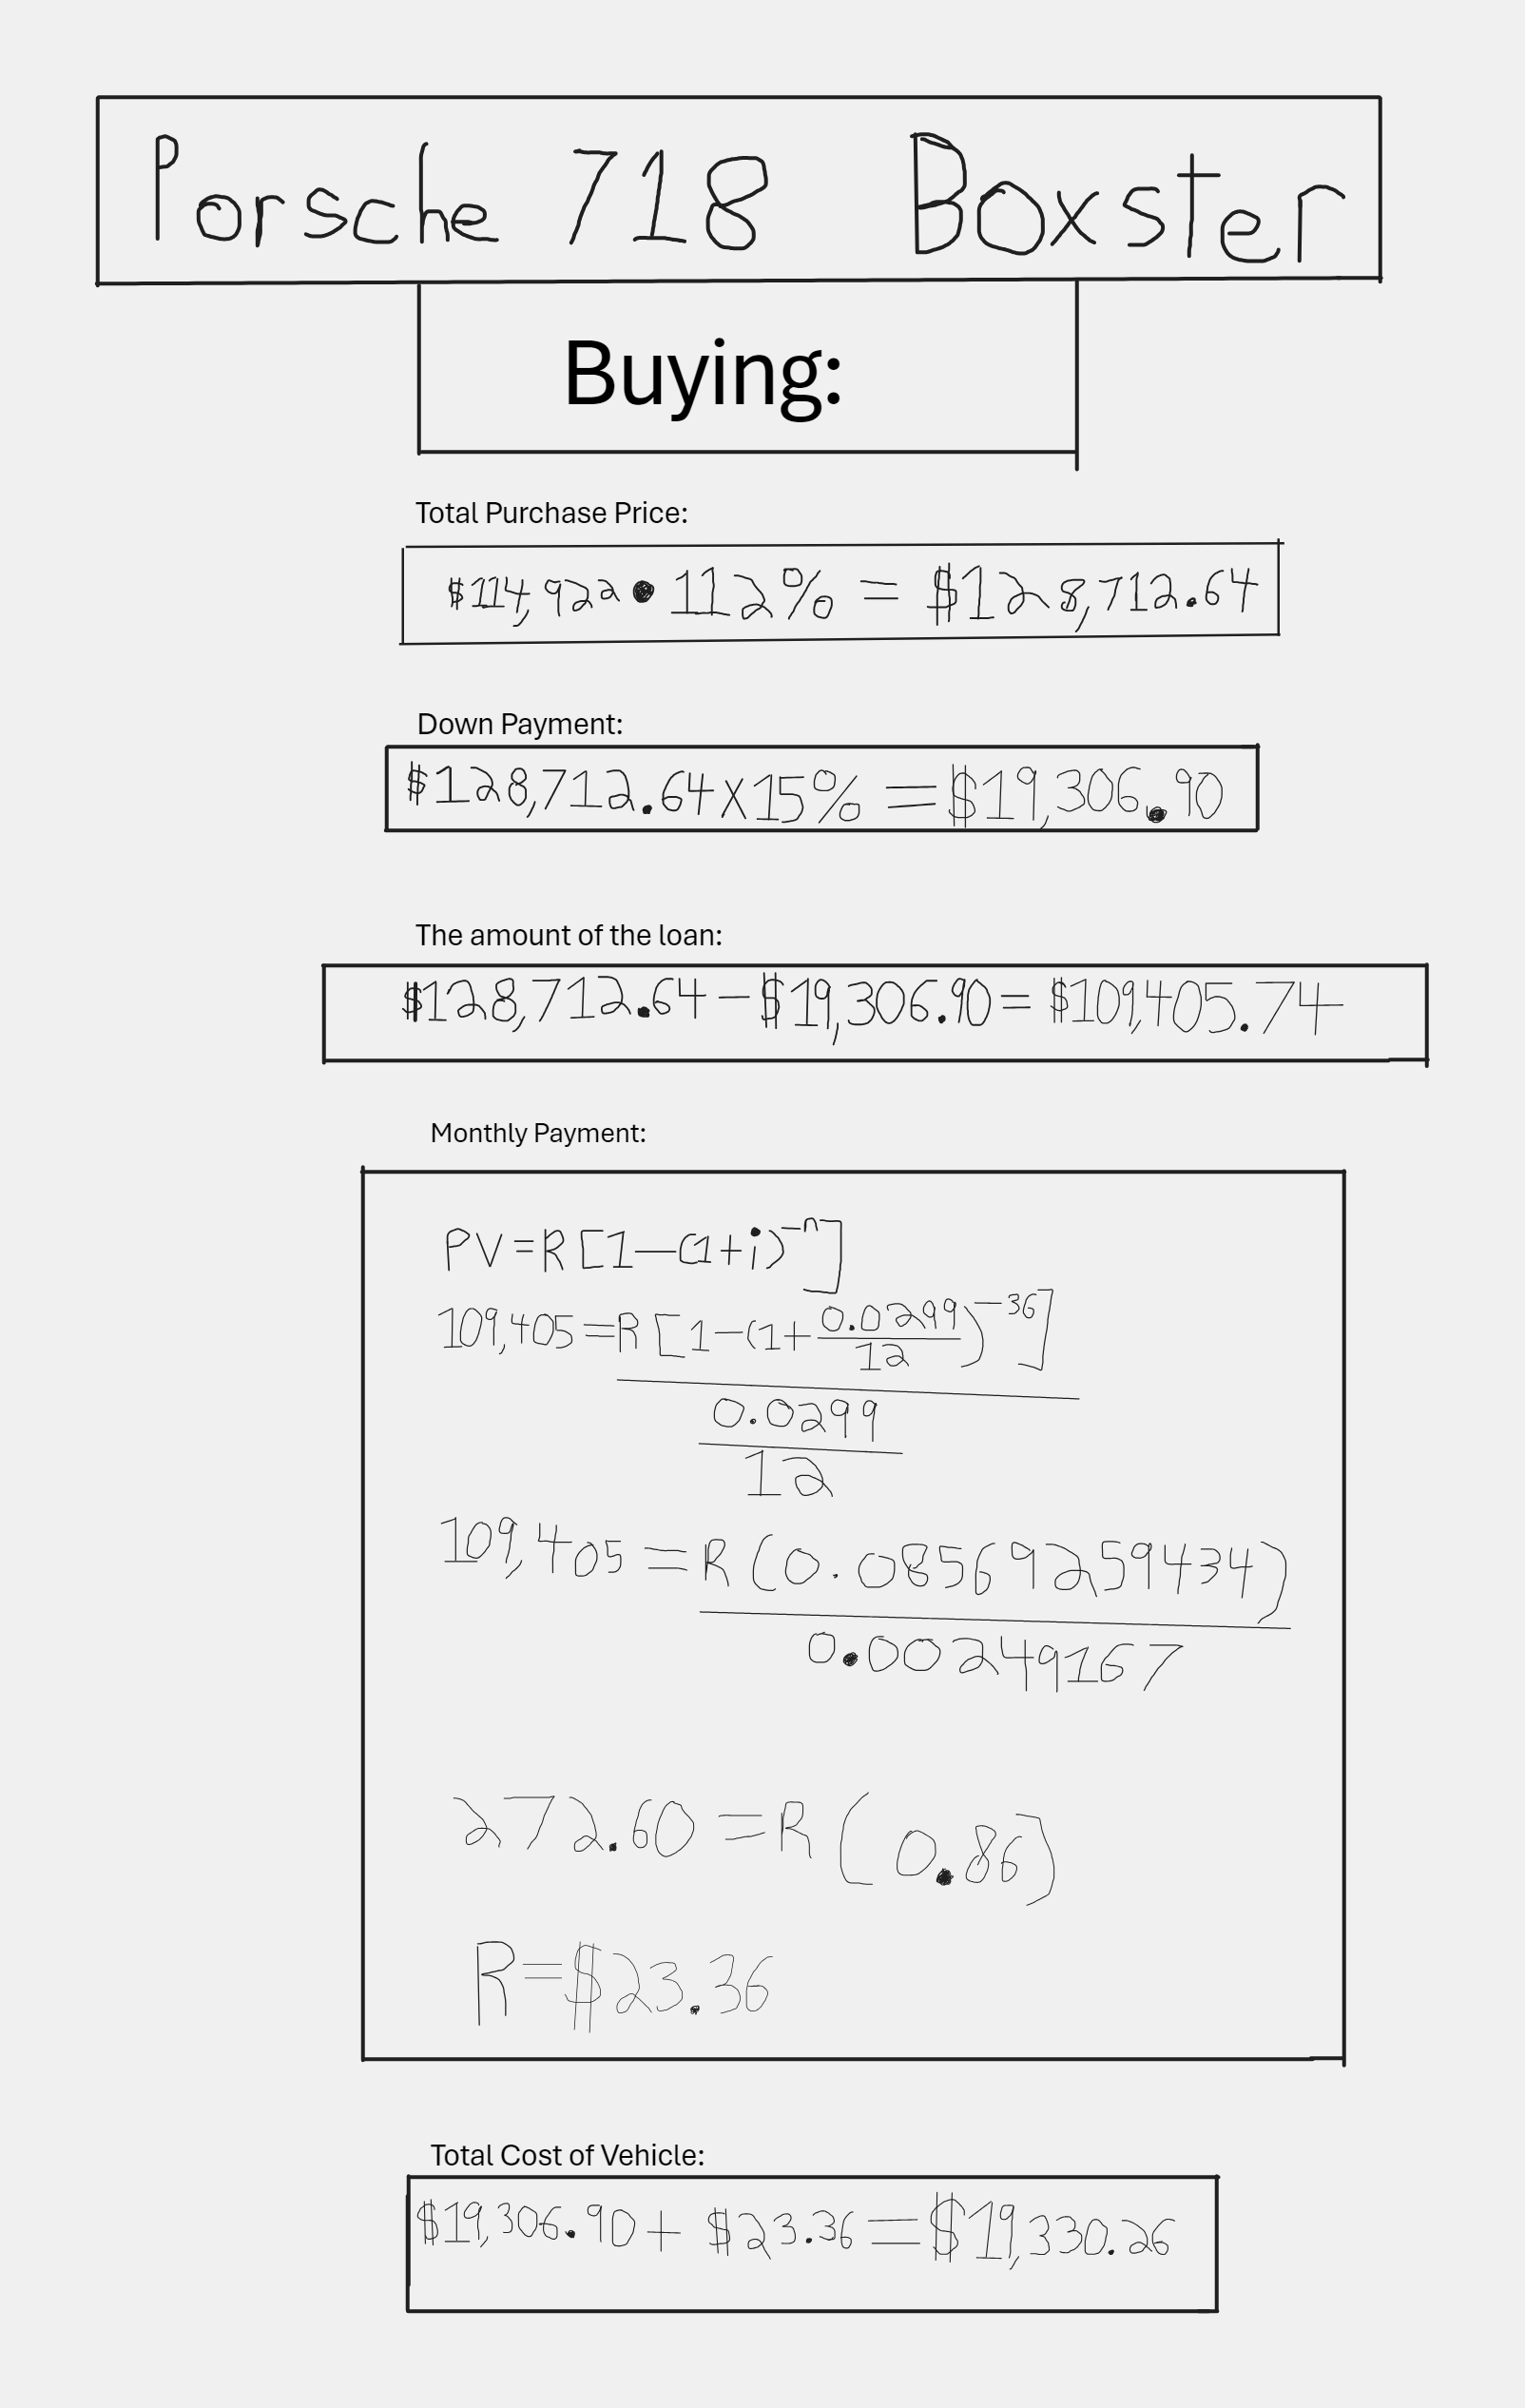 Porsche 718 Boxster
Buying:
Total Purchase Price:
$114,922 • 112% = $128,712.64
Down Payment:
$128,712.64 X 15% = $19,306.90
The amount of the loan:
$128,712.64 - $19,306.90 = $109,405.74
Monthly Payment:
PV = R [1 - (1 + i)^-n]
109,405 = R [1 - (1 + 0.0299/12)^-36]
0.0299
12
109,405 = R (0.08569259434)
0.00249167
272.60 = R (0.86)
R = $23.36
Total Cost of Vehicle:
$19,306.90 + $23.36 = $19,330.26